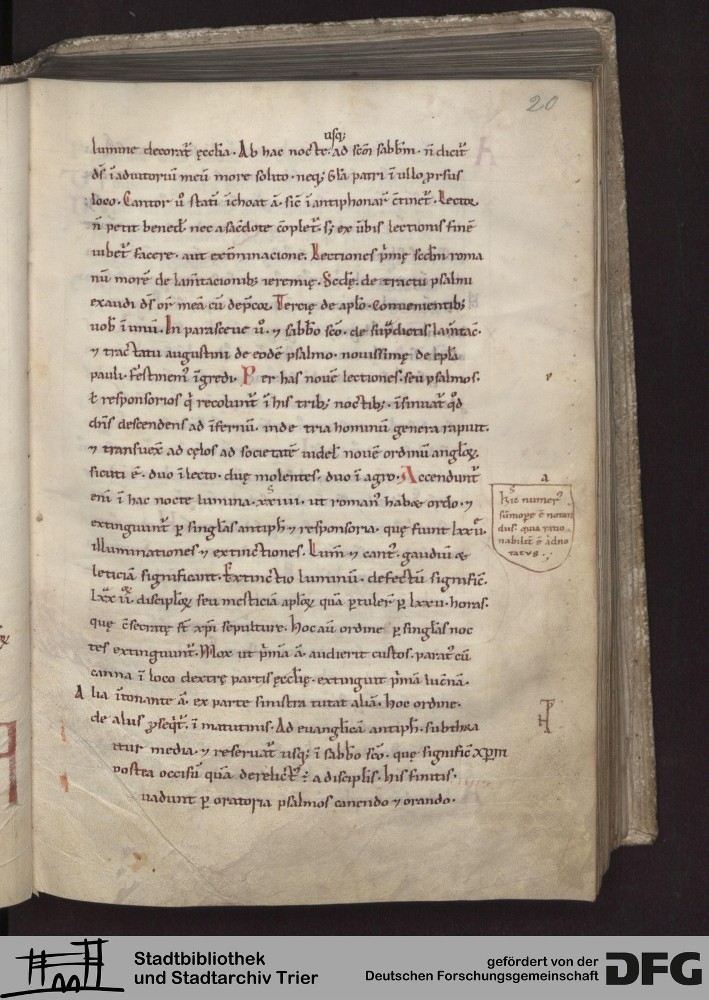 20
usq;
lumine decorat᷑ ęcclia. Ab hac nocte. ad scm̄ sabbm̄. n̄ dicit᷑
ds̄ ī adiutoriū meū more solito. neq; Gła patri ī ullo ꝓrsus
loco. Cantor ů statī īchoat a͛. sic̄ ī antiphonar̄ c̄tinet᷑. Lector
n̄ petit bened̄. nec a sac̄dote c̄plet᷑. sȝ ex ūbis lectionis finē
iubet᷑ facere. aut ext̄minacione. Lectiones p̄mę scdm̄ roma
nū morē de lam̄tacionib; ieremię. Scdę. de tractu psalmi
exaudi ds̄ or̄ meā cū dep̄cor. Tercię de apło. Conuenientib;
uob̄ ī unū. In parasceue ů. ⁊ sabbo sco. de sup̄dictis lam̄tac̄.
⁊ tractatu augustini de eodē psalmo. nouissimę de epła
pauli. Festinem᷒ īgredi. Per has nouē lectiones. seu psalmos.
ł responsorios q̄ recolunt᷑ ī his trib; noctib; īsinuat᷑ qd̄
dn̄s descendens ad īfernū. inde tria hominū genera rapuit.
⁊ transuex̄ ad cęlos ad societatē uidel̄ nouē ordinū angloꝝ.
sicuti ē. duo ī lecto. duę molentes. duo ī agro. Accendunt᷑
eni ī hac nocte lumina. xxiiii. ut roman᷒ habet ordo. ⁊
extinguunt᷑ ꝑ singlas antiph̄ ⁊ responsoria. quę fiunt lxxii.
illuminationes ⁊ extinctiones. Lum̄ ⁊ cant᷒. gaudiū et
leticiā significant. Extinctio luminū. defectū signific̄.
Lxxii discipłoꝝ seu mesticiā apłoꝝ quā ꝑtuler̄ ꝑ lxxii. horas.
quę c̄secratę st̄ xp̄i sepulture. Hoc aū ordine ꝑ singlas noc
tes extinguunt᷑. Mox ut p̄mā a͛. audierit custos. parat᷒ cū
canna ī loco dextrę partis ęcclię. extinguit p̄mā lucn̄ā.
Alia ītonante a͛. ex parte sinistra tutat aliā. Hoc ordine.
de aliis ꝓseqt᷑. ī matutinis. Ad euanglicā antiph̄. subtra
itur media. ⁊ reseruat᷑ usq; ī sabbo sco. quę signific̄ xp̄m
postea occisū quā derelict᷒ : a discipłis. His finitis.
uadunt ꝑ oratoria psalmos canendo ⁊ orando.
a
Hic numer᷒
sūmopē ē notan
dus. quia ratio
nabilit᷑ ē adno
tatus.
Stadtbibliothek
und Stadtarchiv Trier
gefördert von der
Deutschen Forschungsgemeinschaft
DFG